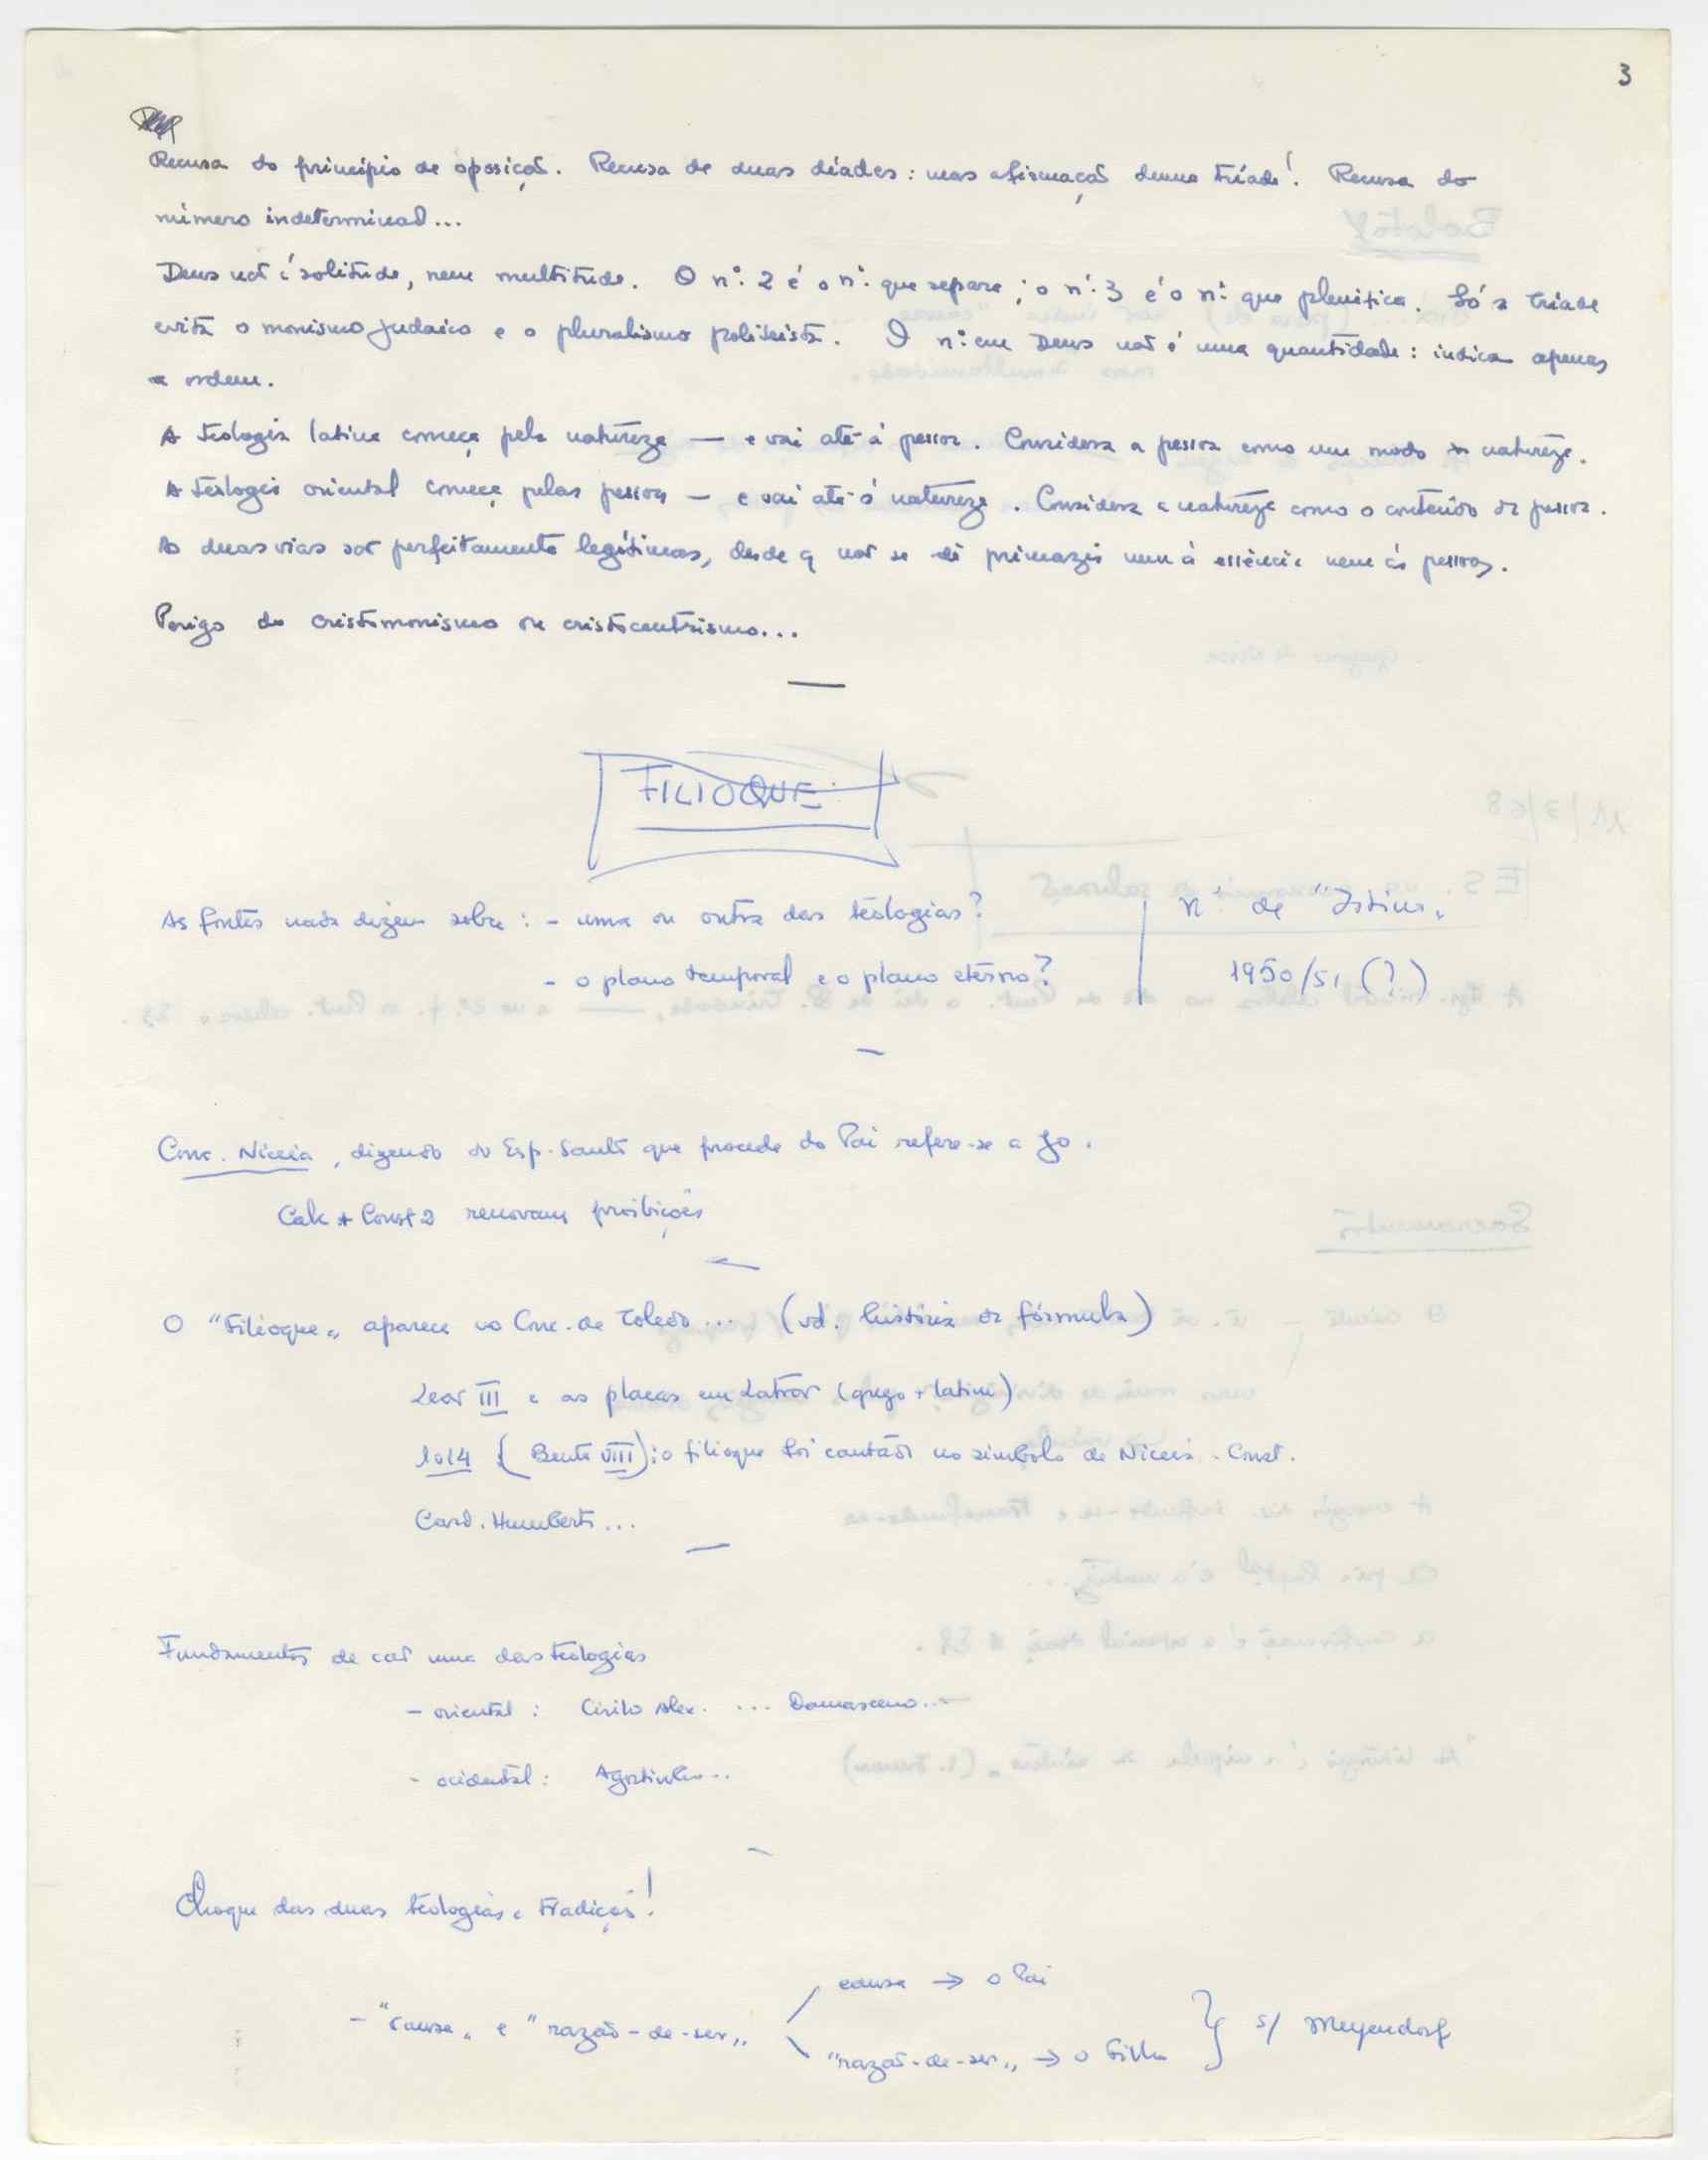 3
Recusa do princípio de oposição. Recusa de duas díades: mas afirmação duma tríade! Recusa do
número indeterminado...
Deus não é solitude, nem multitude. O nº. 2 é o nº. que separa; o nº. 3 é o nº. que plenifica. Só a tríade
evita o monismo judaico e o pluralismo politeista. O nº. em Deus não é uma quantidade: indica apenas
a ordem.
A teologia latina começa pela natureza — e vai até à pessoa. Considera a pessoa como um modo da natureza.
A teologia oriental começa pelas pessoas — e vai até à natureza. Considera a natureza como o conteúdo da pessoa.
As duas vias são perfeitamente legítimas, desde q não se dê primazia nem à essência nem às pessoas.
Perigo do cristomonismo ou cristocentrismo...
FILIOQUE
As fontes nada dizem sobre: - uma ou outra das teologias?
- o plano temporal e o plano eterno?
nº de "Istina"
1950/51 (?)
Conc. Niceia, dizendo do Esp. Santo que procede do Pai refere-se a Jo.
Calc + Const 2 renovam proibições
O "Filioque" aparece no Conc. de Toledo... (vd. história da fórmula)
Leão III e as placas em Latrão (grego + latim)
1014 (Bento VIII): o filioque foi cantado no símbolo de Niceia-Const.
Card. Humberto...
Fundamentos de cada uma das teologias
- oriental: Cirilo Alex. ... Damasceno...
- ocidental: Agostinho...
Choque das duas teologias e tradições!
- "causa" e "razão-de-ser"
causa → o Pai
"razão-de-ser" → o Filho
} s/ Meyendorf